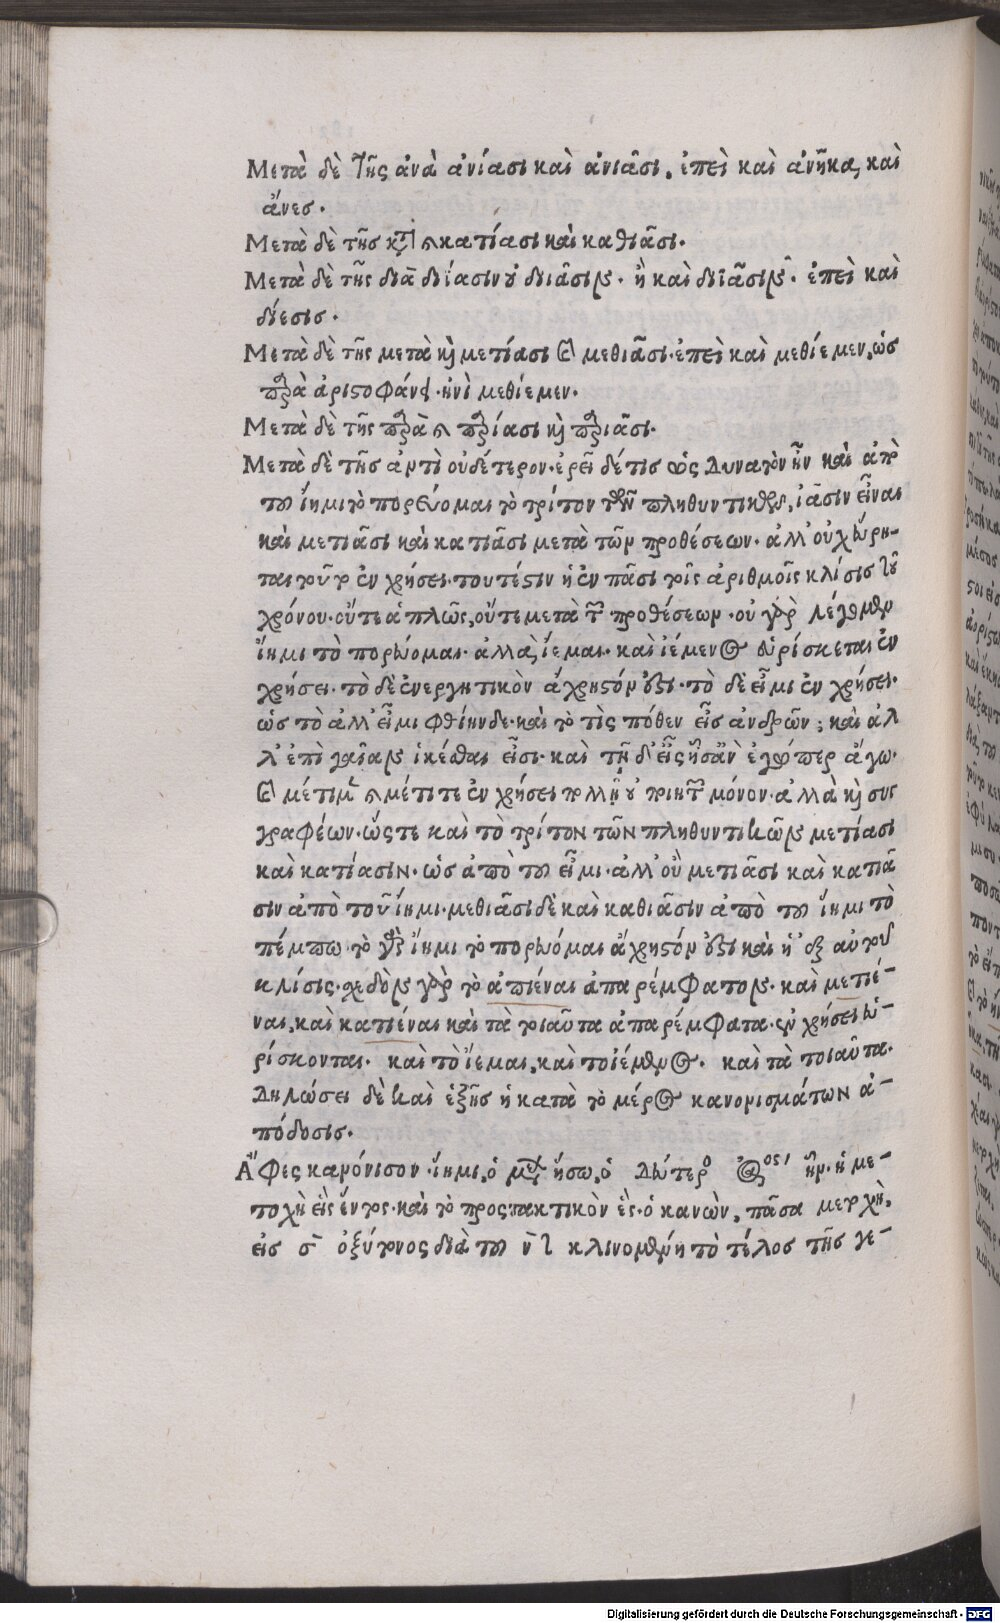 Μετὰ δὲ τῆς ἀνὰ ἀνίασι καὶ ἀνιᾶσι. ἐπεὶ καὶ ἀνῆκα, καὶ
ἄνες.
Μετὰ δὲ τῆς κατὰ κατίασι καὶ καθιᾶσι.
Μετὰ δὲ τῆς διὰ διίασιν διᾶσιν. ἢ καὶ διϊᾶσιν. ἐπεὶ καὶ
δίεσις.
Μετὰ δὲ τῆς μετὰ καὶ μετίασι καὶ μεθιᾶσι. ἐπεὶ καὶ μεθίεμεν. ὡς
παρὰ ἀριστοφάνει. ἡνὶ μεθίεμεν.
Μετὰ δὲ τῆς παρὰ παρίασι καὶ παριᾶσι.
Μετὰ δὲ τῆς ἀντὶ οὐδέτερον. ἐρεῖ δέ τις ὡς δυνατὸν ἦν καὶ ἀπὸ
τοῦ ἵημι τὸ πορεύομαι τὸ τρίτον τῶν πληθυντικῶν, ἱᾶσιν εἶναι
καὶ μετιᾶσι καὶ κατιᾶσι μετὰ τῶν προθέσεων. ἀλλ' οὐχ εὕρη-
ται τοῦτο ἐν χρήσει. τουτέστιν ἡ ἐν πᾶσι τοῖς ἀριθμοῖς κλίσις τοῦ
χρόνου. οὔτε ἁπλῶς, οὔτε μετὰ τῶν προθέσεων. οὐ γὰρ λέγομεν
ἵημι τὸ πορεύομαι. ἀλλὰ, ἵεμαι. καὶ ἱέμενος εὑρίσκεται ἐν
χρήσει. τὸ δὲ ἐνεργητικὸν ἄχρηστόν ἐστι. τὸ δὲ εἶμι ἐν χρήσει.
ὡς τὸ ἀλλ' εἶμι φθίηνδε. καὶ τὸ τίς πόθεν εἶς ἀνδρῶν; καὶ ἀλ
λ' ἐπὶ γαῖαν ἱκέσθαι εἶσι. καὶ τῇ δ' εἶς ᾗ σ' ἂν ἐγώ περ ἄγω.
καὶ μέτιμεν μέτιτε ἐν χρήσει μόνον. ἀλλὰ καὶ συγ
γραφέων. ὥστε καὶ τὸ τρίτον τῶν πληθυντικῶν μετίασι
καὶ κατίασιν. ὡς ἀπὸ τοῦ εἶμι. ἀλλ' οὐ μετιᾶσι καὶ κατιᾶ
σιν ἀπὸ τοῦ ἵημι. μεθιᾶσι δὲ καὶ καθιᾶσιν ἀπὸ τοῦ ἵημι τὸ
πέμπω. τὸ γὰρ ἵημι τὸ πορεύομαι ἄχρηστόν ἐστι καὶ ἡ ἐξ αὐτοῦ
κλίσις. σχεδὸν γὰρ τὸ ἀπιέναι ἀπαρέμφατον. καὶ μετιέ-
ναι, καὶ κατιέναι καὶ τὰ τοιαῦτα ἀπαρέμφατα. ἐν χρήσει εὑ-
ρίσκονται. καὶ τὸ ἵεμαι, καὶ τὸ ἱέμενος. καὶ τὰ τοιαῦτα.
Δηλώσει δὲ καὶ ἑξῆς ἡ κατὰ τὸ μέρος κανονισμάτων ἀ-
πόδοσις.
Ἄφες κανόνισον. ἵημι, ὁ μέλλων ἥσω, ὁ δεύτερος ἀόριστος ἧν. ἡ με-
τοχὴ εἷς ἕντος. καὶ τὸ προστακτικὸν ἕς. ὁ κανών, πᾶσα μετοχὴ,
εἰς ς ὀξύτονος διὰ τοῦ ντ κλινομένη τὸ τέλος τῆς γε-